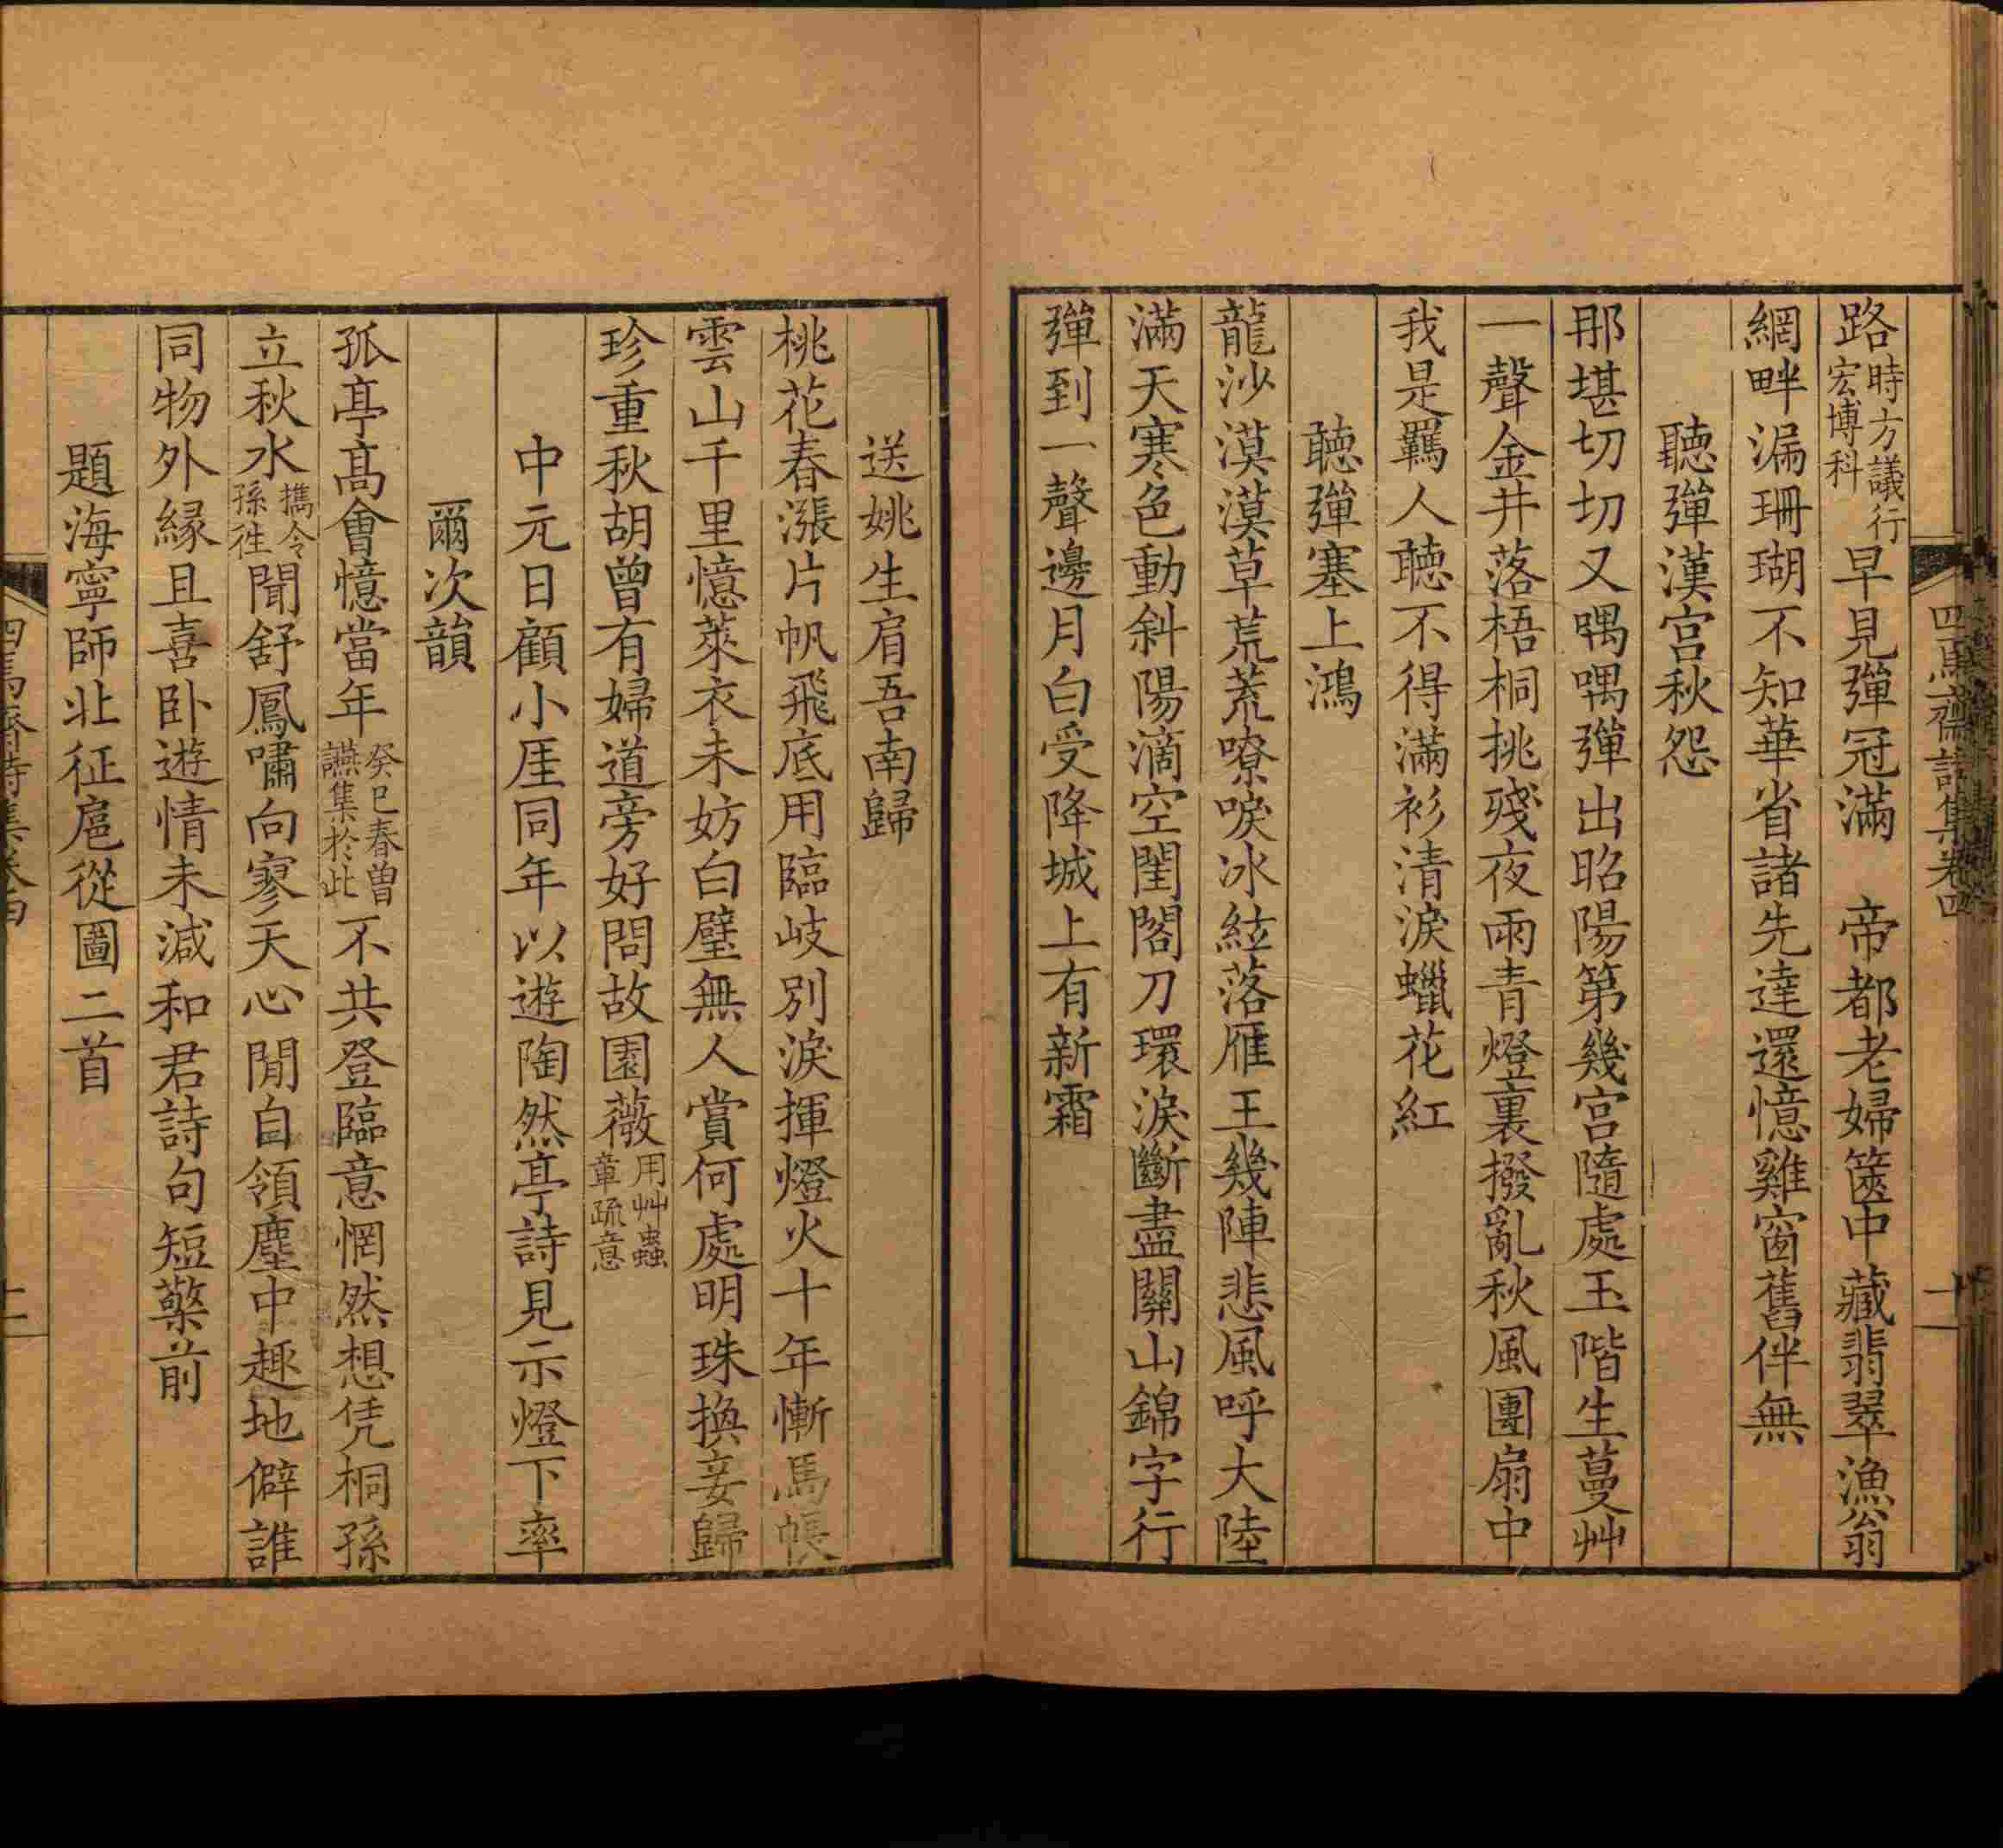 路時方議行宏博科早見彈冠滿　帝都老婦篋中藏翡翠漁翁
網畔漏珊瑚不知華省諸先達還憶雞窗舊伴無
聽彈漢宮秋怨
那堪切切又喁喁彈出昭陽第幾宮隨處玉階生蔓艸
一聲金井落梧桐挑殘夜雨青燈裏撥亂秋風團扇中
我是羈人聽不得滿衫清淚蠟花紅
聽彈塞上鴻
龍沙漠漠草荒荒嘹唳冰絃落雁王幾陣悲風呼大陸
滿天寒色動斜陽滴空閨閣刀環淚斷盡關山錦字行
彈到一聲邊月白受降城上有新霜
送姚生肩吾南歸
桃花春漲片帆飛底用臨岐別淚揮燈火十年慚馬帳
雲山千里憶萊衣未妨白璧無人賞何處明珠換妾歸
珍重秋胡曾有婦道旁好問故園薇用艸蟲章疏意
中元日顧小厓同年以遊陶然亭詩見示燈下率
爾次韻
孤亭高會憶當年癸巳春曾讌集於此不共登臨意惘然想凭桐孫
立秋水攜令孫往聞舒鳳嘯向寥天心閒自領塵中趣地僻誰
同物外緣且喜臥遊情未減和君詩句短檠前
題海寧師北征扈從圖二首
四焉齋詩集卷四